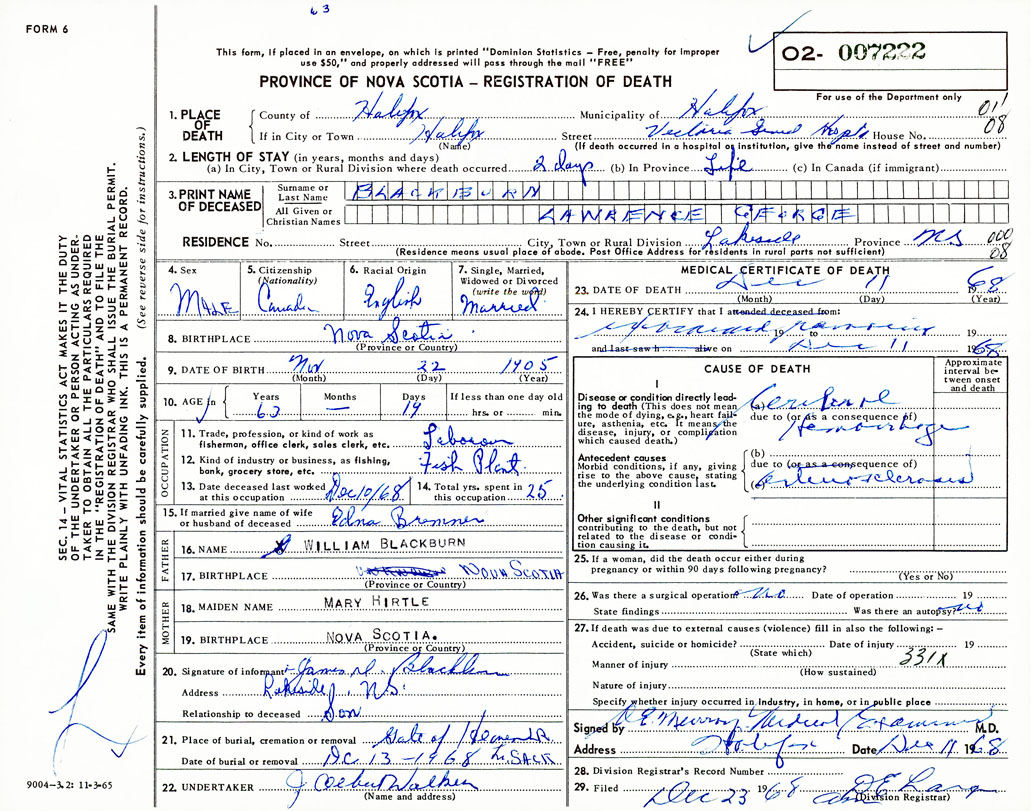 63
FORM 6
This form, if placed in an envelope, on which is printed "Dominion Statistics – Free, penalty for improper
use $50," and properly addressed will pass through the mail "FREE"
O2- 007222
PROVINCE OF NOVA SCOTIA – REGISTRATION OF DEATH
For use of the Department only
1. PLACE OF DEATH
County of Halifax Municipality of Halifax 01
If in City or Town Halifax Street Victoria General Hospt House No. 08
(Name) (If death occurred in a hospital or institution, give the name instead of street and number)
2. LENGTH OF STAY (in years, months and days)
(a) In City, Town or Rural Division where death occurred 2 days (b) In Province Life (c) In Canada (if immigrant)
3. PRINT NAME OF DECEASED
Surname or Last Name BLACKBURN
All Given or Christian Names LAWRENCE GEORGE
RESIDENCE No. Street City, Town or Rural Division Lakeside Province NS 000
(Residence means usual place of abode. Post Office Address for residents in rural parts not sufficient) 08
4. Sex MALE
5. Citizenship (Nationality) Canada
6. Racial Origin English
7. Single, Married, Widowed or Divorced (write the word) Married
8. BIRTHPLACE Nova Scotia
(Province or Country)
9. DATE OF BIRTH Nov 22 1905
(Month) (Day) (Year)
10. AGE in Years 63 Months — Days 19 If less than one day old hrs. or min.
OCCUPATION
11. Trade, profession, or kind of work as fisherman, office clerk, sales clerk, etc. Laborour
12. Kind of industry or business, as fishing, bank, grocery store, etc. Fish Plant
13. Date deceased last worked at this occupation Dec 10/68
14. Total yrs. spent in this occupation 25
15. If married give name of wife or husband of deceased Edna Bremner
FATHER
16. NAME WILLIAM BLACKBURN
17. BIRTHPLACE NOVA SCOTIA
(Province or Country)
MOTHER
18. MAIDEN NAME MARY HIRTLE
19. BIRTHPLACE NOVA SCOTIA.
(Province or Country)
20. Signature of informant James Blackburn
Address Lakeside, N.S.
Relationship to deceased Son
21. Place of burial, cremation or removal Gate of Heaven
Date of burial or removal Dec 13 – 1968 Lr. SACK.
22. UNDERTAKER J Walker
(Name and address)
9004–3.2: 11-3-65
MEDICAL CERTIFICATE OF DEATH
23. DATE OF DEATH Dec 11 1968
(Month) (Day) (Year)
24. I HEREBY CERTIFY that I attended deceased from:
19 to 19
and last saw h alive on Dec 11 1968
CAUSE OF DEATH
Approximate interval between onset and death
I
Disease or condition directly leading to death (This does not mean the mode of dying, e.g., heart failure, asthenia, etc. It means the disease, injury, or complication which caused death.)
(a) Cerebral
due to (or as a consequence of)
Hemorrhage
Antecedent causes
Morbid conditions, if any, giving rise to the above cause, stating the underlying condition last.
(b)
due to (or as a consequence of)
(c) arteriosclerosis
II
Other significant conditions contributing to the death, but not related to the disease or condition causing it.
25. If a woman, did the death occur either during
pregnancy or within 90 days following pregnancy?
(Yes or No)
26. Was there a surgical operation? no Date of operation 19
State findings Was there an autopsy? no
27. If death was due to external causes (violence) fill in also the following: –
Accident, suicide or homicide? Date of injury 19
(State which)
331X
Manner of injury
(How sustained)
Nature of injury
Specify whether injury occurred in industry, in home, or in public place
Signed by Murray Medical Examiner M.D.
Address Halifax Date Dec 11 1968
28. Division Registrar's Record Number
29. Filed Dec 23 1968
Division Registrar
SEC. 14 – VITAL STATISTICS ACT MAKES IT THE DUTY
OF THE UNDERTAKER OR PERSON ACTING AS UNDER-
TAKER TO OBTAIN ALL THE PARTICULARS REQUIRED
IN THE "REGISTRATION OF DEATH" AND TO FILE THE
SAME WITH THE DIVISION REGISTRAR WHO SHALL ISSUE THE BURIAL PERMIT.
WRITE PLAINLY WITH UNFADING INK. THIS IS A PERMANENT RECORD.
Every item of information should be carefully supplied. (See reverse side for instructions.)